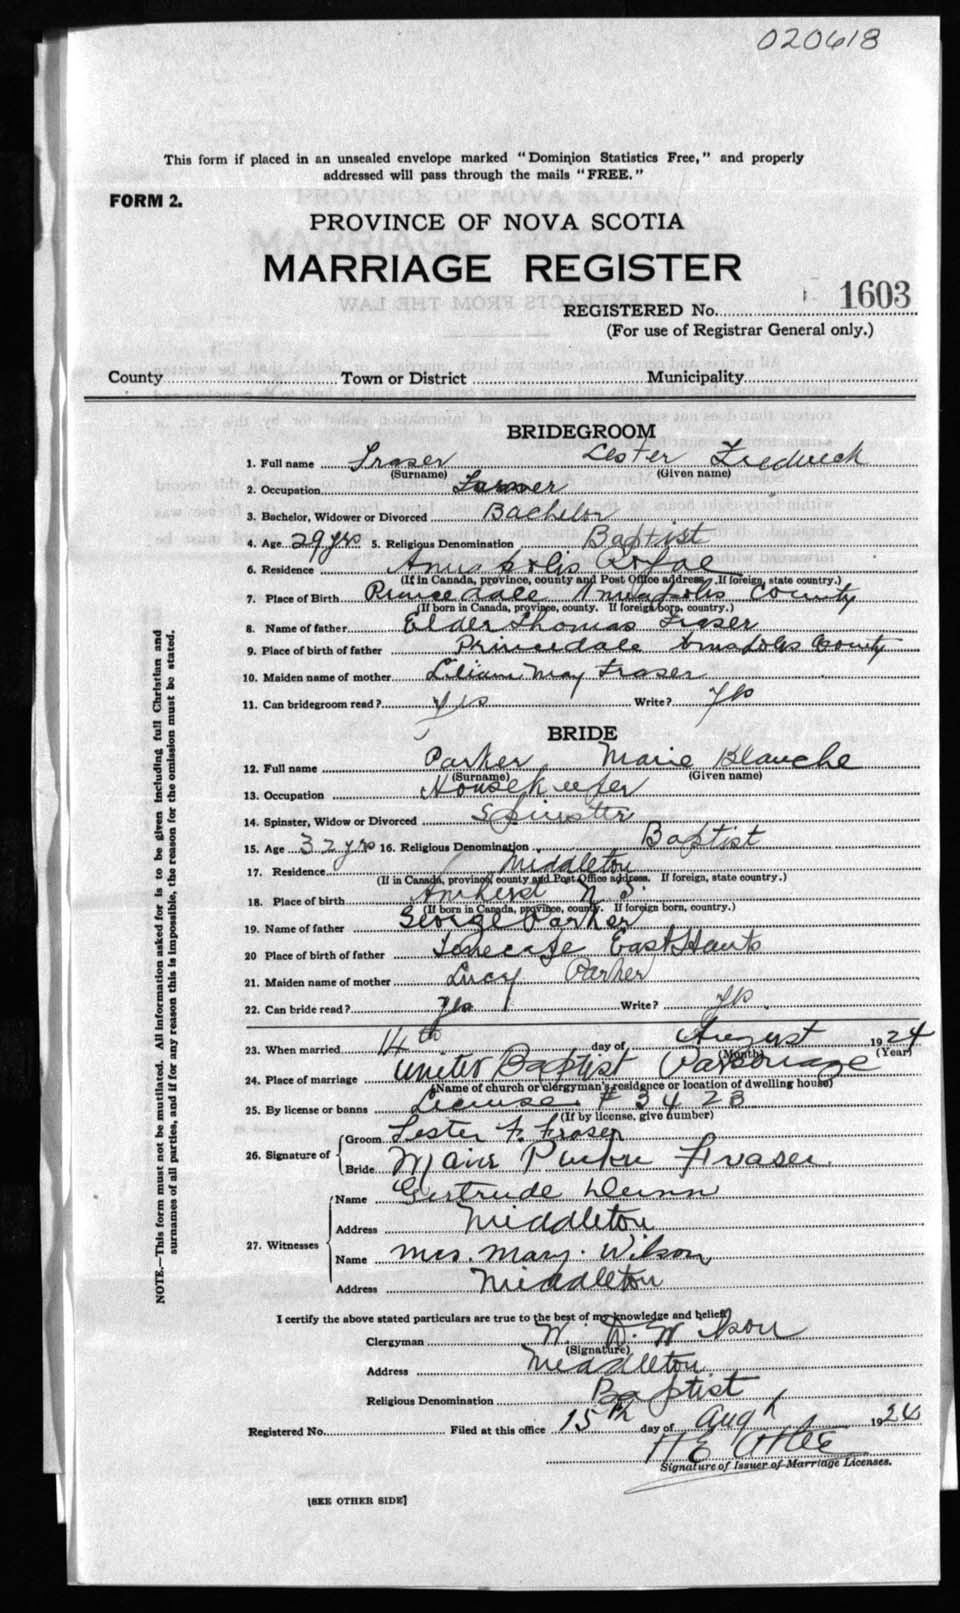 020618
This form if placed in an unsealed envelope marked "Dominion Statistics Free," and properly
addressed will pass through the mails "FREE."
FORM 2.
PROVINCE OF NOVA SCOTIA
MARRIAGE REGISTER
REGISTERED No. 1603
(For use of Registrar General only.)
County Town or District Municipality
BRIDEGROOM
1. Full name Fraser Lester Fredrick
(Surname) (Given name)
2. Occupation Farmer
3. Bachelor, Widower or Divorced Bachelor
4. Age 29 yrs 5. Religious Denomination Baptist
6. Residence Annapolis Royal
(If in Canada, province, county and Post Office address. If foreign, state country.)
7. Place of Birth Princedale Annapolis County
(If born in Canada, province, county. If foreign born, country.)
8. Name of father Elder Thomas Fraser
9. Place of birth of father Princedale Annapolis County
10. Maiden name of mother Liliam May Fraser
11. Can bridegroom read? Yes Write? Yes
BRIDE
12. Full name Parker Marie Blanche
(Surname) (Given name)
13. Occupation Housekeeper
14. Spinster, Widow or Divorced Spinster
15. Age 32 yrs 16. Religious Denomination Baptist
17. Residence Middleton
(If in Canada, province, county and Post Office address. If foreign, state country.)
18. Place of birth Amherst N.S.
(If born in Canada, province, county. If foreign born, country.)
19. Name of father George Parker
20 Place of birth of father East Hants
21. Maiden name of mother Lucy Parker
22. Can bride read? Yes Write? Yes
23. When married 14th day of August 1924
(Month) (Year)
24. Place of marriage United Baptist Parsonage
(Name of church or clergyman's residence or location of dwelling house)
25. By license or banns License # 3423
(If by license, give number)
26. Signature of Groom Lester F. Fraser
Bride Marie Parker Fraser
27. Witnesses Name Gertrude Dunn
Address Middleton
Name Mrs. Mary Wilson
Address Middleton
I certify the above stated particulars are true to the best of my knowledge and belief
Clergyman W. D. Wilson
(Signature)
Address Middleton
Religious Denomination Baptist
Registered No. Filed at this office 15th day of Aug 1924
H E
Signature of Issuer of Marriage Licenses.
[SEE OTHER SIDE]
NOTE.—This form must not be mutilated. All information asked for is to be given including full Christian and
surnames of all parties, and if for any reason this is impossible, the reason for the omission must be stated.